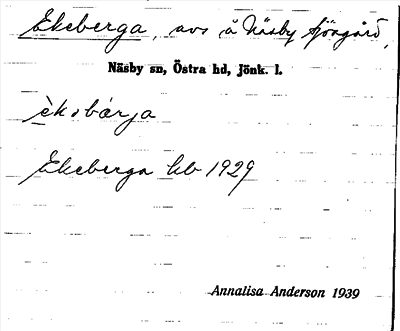 Ekeberga, avs å Näsby sjögård,
Näsby sn, Östra hd, Jönk. l.
Ekeberga kb 1929
Annalisa Anderson 1939